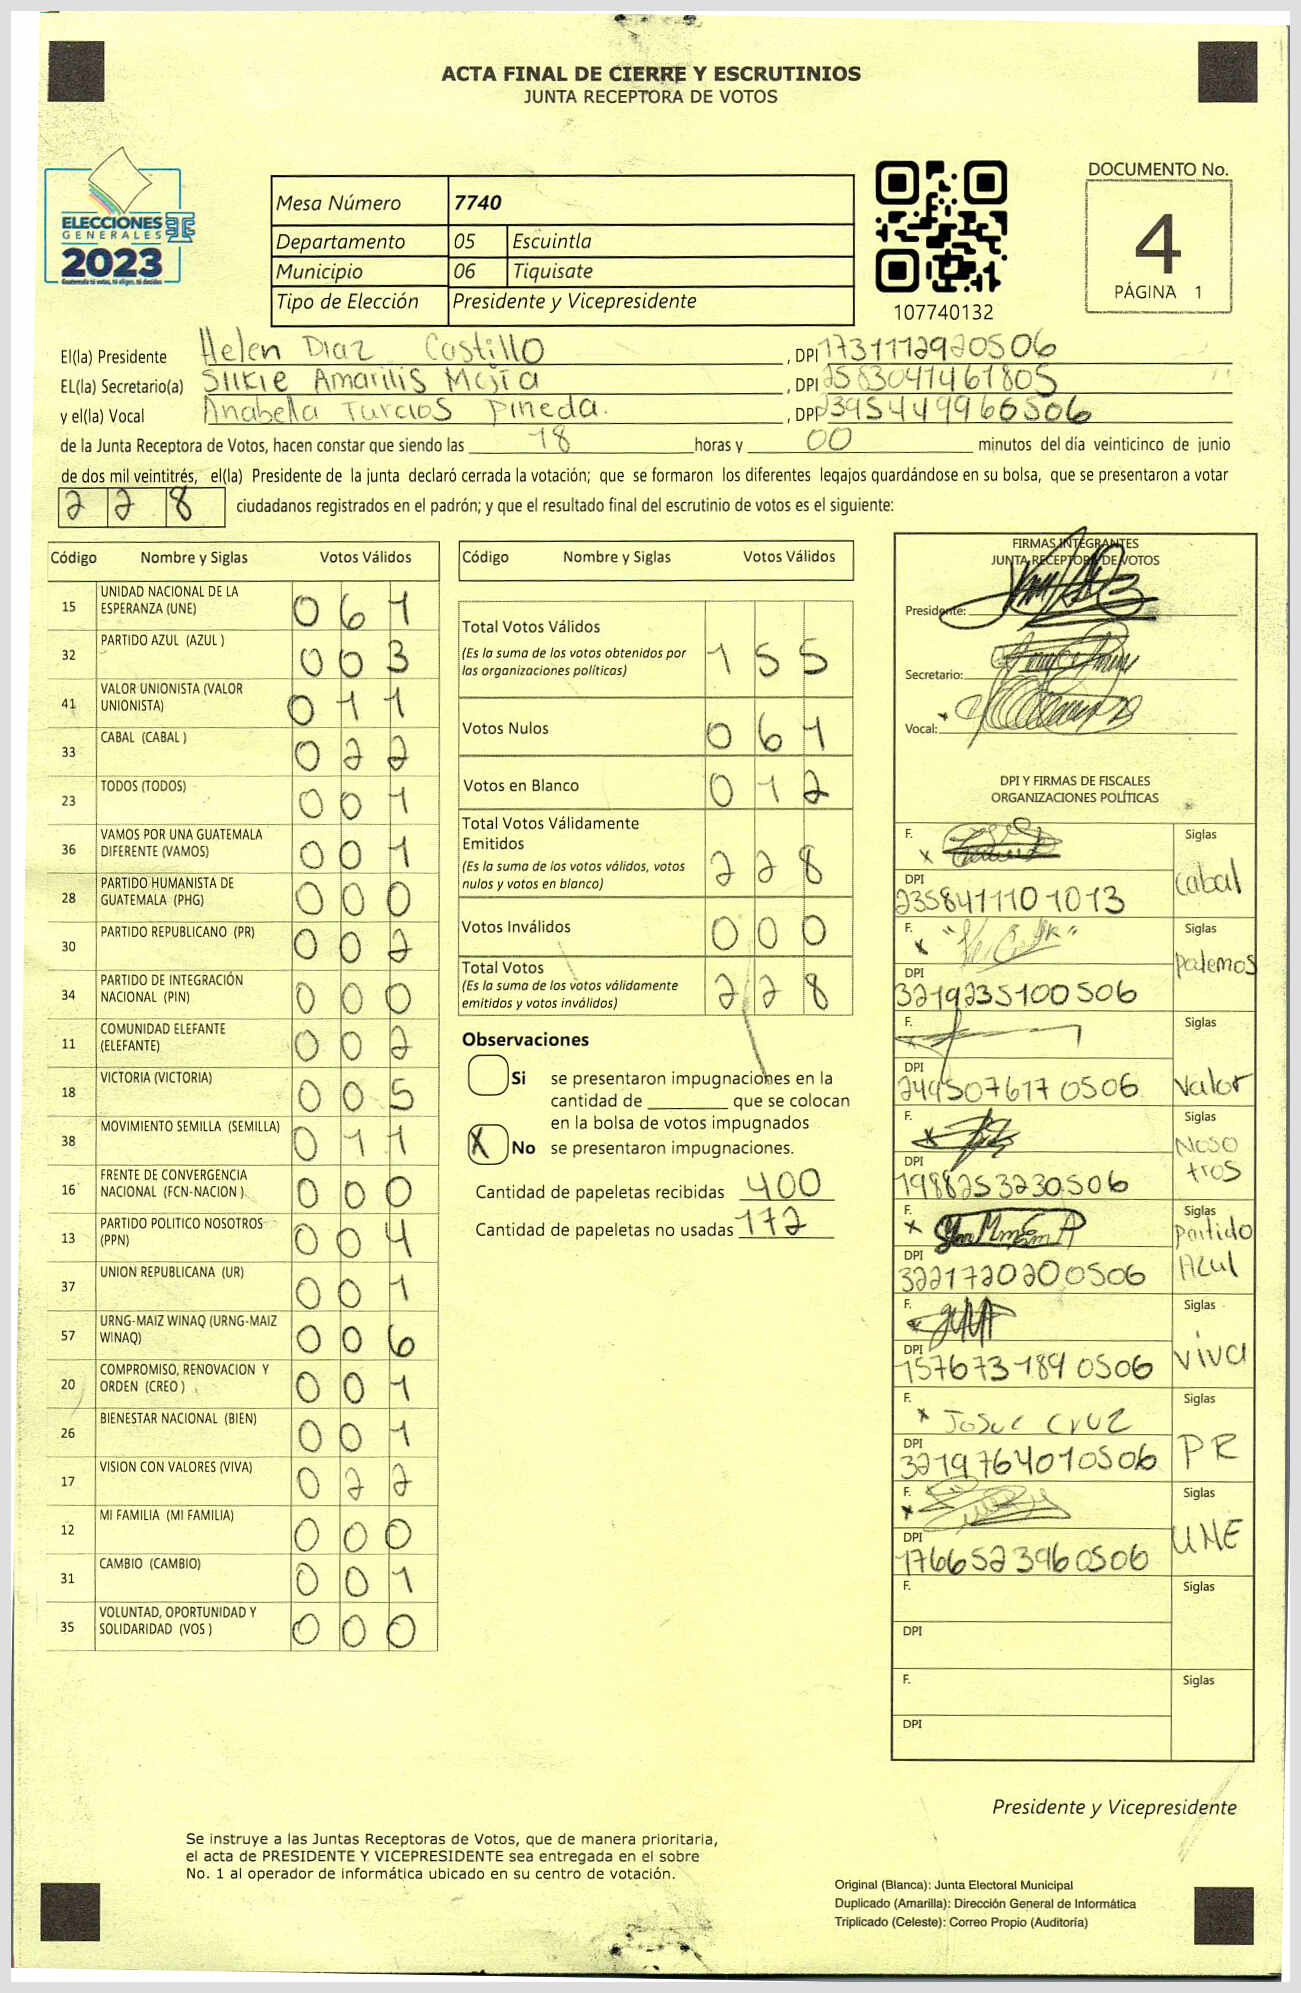 ACTA FINAL DE CIERRE Y ESCRUTINIOS
JUNTA RECEPTORA DE VOTOS
ELECCIONES
GENERALES
2023
Mesa Número 7740
Departamento 05 Escuintla
Municipio 06 Tiquisate
Tipo de Elección Presidente y Vicepresidente
107740132
DOCUMENTO No.
4
PÁGINA 1
El(la) Presidente Helen Diaz Castillo, DPI 1731112920506
EL(la) Secretario(a) Silkie Amarilis Mejia, DPI 2583041461805
y el(la) Vocal Anabella Turcios Pineda., DPI 2395449960506
de la Junta Receptora de Votos, hacen constar que siendo las 18 horas y 00 minutos del día veinticinco de junio
de dos mil veintitrés, el(la) Presidente de la junta declaró cerrada la votación; que se formaron los diferentes legajos guardándose en su bolsa, que se presentaron a votar
228 ciudadanos registrados en el padrón; y que el resultado final del escrutinio de votos es el siguiente:
Código Nombre y Siglas Votos Válidos
15 UNIDAD NACIONAL DE LA ESPERANZA (UNE) 061
32 PARTIDO AZUL (AZUL ) 003
41 VALOR UNIONISTA (VALOR UNIONISTA) 011
33 CABAL (CABAL ) 022
23 TODOS (TODOS) 001
36 VAMOS POR UNA GUATEMALA DIFERENTE (VAMOS) 001
28 PARTIDO HUMANISTA DE GUATEMALA (PHG) 000
30 PARTIDO REPUBLICANO (PR) 002
34 PARTIDO DE INTEGRACIÓN NACIONAL (PIN) 000
11 COMUNIDAD ELEFANTE (ELEFANTE) 002
18 VICTORIA (VICTORIA) 005
38 MOVIMIENTO SEMILLA (SEMILLA) 011
16 FRENTE DE CONVERGENCIA NACIONAL (FCN-NACION ) 000
13 PARTIDO POLITICO NOSOTROS (PPN) 004
37 UNION REPUBLICANA (UR) 001
57 URNG-MAIZ WINAQ (URNG-MAIZ WINAQ) 006
20 COMPROMISO, RENOVACION Y ORDEN (CREO ) 001
26 BIENESTAR NACIONAL (BIEN) 001
17 VISION CON VALORES (VIVA) 022
12 MI FAMILIA (MI FAMILIA) 000
31 CAMBIO (CAMBIO) 001
35 VOLUNTAD, OPORTUNIDAD Y SOLIDARIDAD (VOS ) 000
Código Nombre y Siglas Votos Válidos
Total Votos Válidos 155
(Es la suma de los votos obtenidos por
las organizaciones políticas)
Votos Nulos 061
Votos en Blanco 012
Total Votos Válidamente
Emitidos 228
(Es la suma de los votos válidos, votos
nulos y votos en blanco)
Votos Inválidos 000
Total Votos 228
(Es la suma de los votos válidamente
emitidos y votos inválidos)
Observaciones
Si se presentaron impugnaciones en la
cantidad de ________ que se colocan
en la bolsa de votos impugnados
X No se presentaron impugnaciones.
Cantidad de papeletas recibidas 400
Cantidad de papeletas no usadas 172
FIRMAS INTEGRANTES
JUNTA RECEPTORA DE VOTOS
Presidente:
Secretario:
Vocal:
DPI Y FIRMAS DE FISCALES
ORGANIZACIONES POLÍTICAS
F. Siglas
DPI 2358411101013 Cabal
F. Siglas
DPI 3219235100506 Podemos
F. Siglas
DPI 2495076170506 Valor
F. Siglas
DPI 1988253230506 Nosotros
F. Siglas
DPI 3221720200506 Partido Azul
F. Siglas
DPI 1576731890506 viva
F. Josue Cruz Siglas
DPI 3219764010506 PR
F. Siglas
DPI 1766523960506 UNE
F. Siglas
DPI
F. Siglas
DPI
Presidente y Vicepresidente
Se instruye a las Juntas Receptoras de Votos, que de manera prioritaria,
el acta de PRESIDENTE Y VICEPRESIDENTE sea entregada en el sobre
No. 1 al operador de informática ubicado en su centro de votación.
Original (Blanca): Junta Electoral Municipal
Duplicado (Amarilla): Dirección General de Informática
Triplicado (Celeste): Correo Propio (Auditoría)